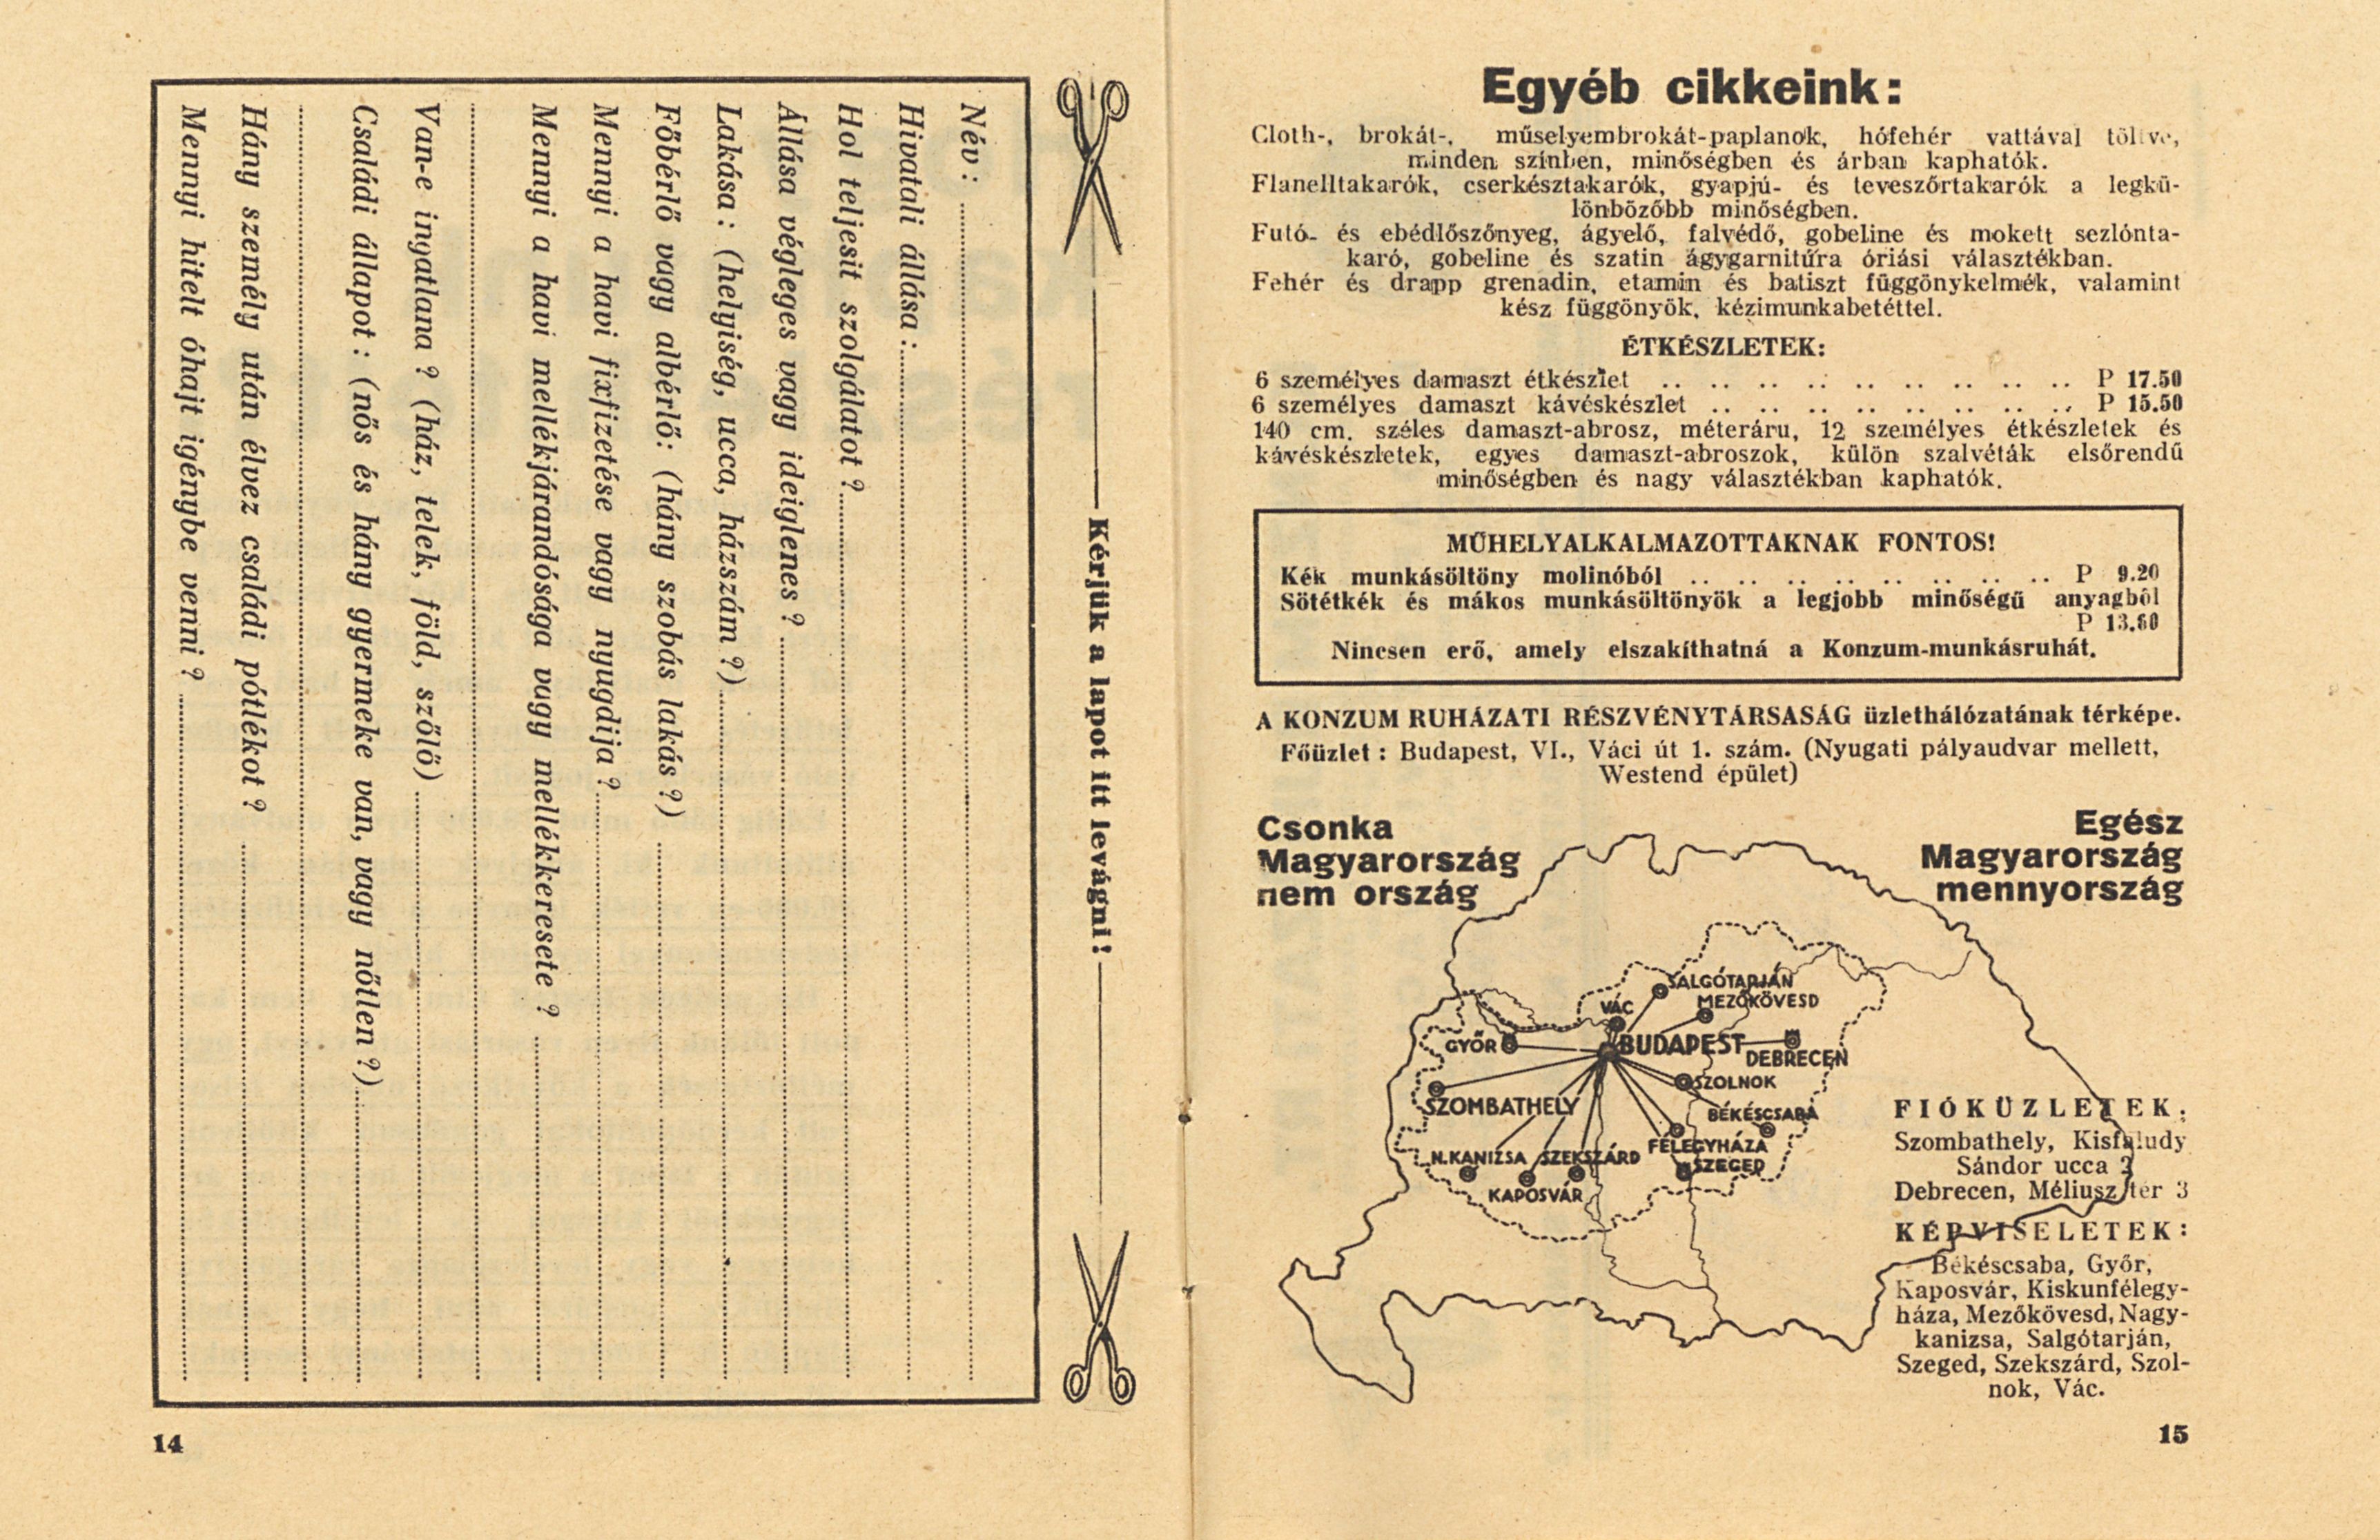 Név:
Hivatali állása:
Hol teljesit szolgálatot?
Állása végleges vagy ideiglenes?
Lakása: (helyiség, ucca, házszám?)
Főbérlő vagy albérlő: (hány szobás lakás?)
Mennyi a havi fixfizetése vagy nyugdija?
Mennyi a havi mellékjárandósága vagy mellékkeresete?
Van-e ingatlana? (ház, telek, föld, szőlő)
Családi állapot: (nős és hány gyermeke van, vagy nőtlen?)
Hány személy után élvez családi pótlékot?
Mennyi hitelt óhajt igénybe venni?
Kérjük a lapot itt levágni!
14
Egyéb cikkeink:
Cloth-, brokát-, műselyembrokát-paplanok, hófehér vattával töltve,
minden színben, minőségben és árban kaphatók.
Flanelltakarók, cserkésztakarók, gyapjú- és teveszőrtakarók a legkü-
lönbözőbb minőségben.
Futó- és ebédlőszőnyeg, ágyelő, falvédő, gobeline és mokett sezlónta-
karó, gobeline és szatin ágygarnitúra óriási választékban.
Fehér és drapp grenadin, etamin és batiszt függönykelmék, valamint
kész függönyök, kézimunkabetéttel.
ÉTKÉSZLETEK:
6 személyes damaszt étkészlet .. .. .. .. .. .. .. .. .. P 17.50
6 személyes damaszt kávéskészlet .. .. .. .. .. .. .. .. P 15.50
140 cm. széles damaszt-abrosz, méteráru, 12 személyes étkészletek és
kávéskészletek, egyes damaszt-abroszok, külön szalvéták elsőrendű
minőségben és nagy választékban kaphatók.
MŰHELYALKALMAZOTTAKNAK FONTOS!
Kék munkásöltöny molinóból .. .. .. .. .. .. .. .. P 9.20
Sötétkék és mákos munkásöltönyök a legjobb minőségű anyagból
P 13.60
Nincsen erő, amely elszakíthatná a Konzum-munkásruhát.
A KONZUM RUHÁZATI RÉSZVÉNYTÁRSASÁG üzlethálózatának térképe.
Főüzlet: Budapest, VI., Váci út 1. szám. (Nyugati pályaudvar mellett,
Westend épület)
Csonka
Magyarország
nem ország
Egész
Magyarország
mennyország
SALGÓTARJÁN
MEZŐKÖVESD
VÁC
GYŐR
BUDAPEST
DEBRECEN
SZOLNOK
SZOMBATHELY
BÉKÉSCSABA
FÉLEGYHÁZA
N.KANIZSA
SZEKSZÁRD
SZEGED
KAPOSVÁR
FIÓKÜZLETEK:
Szombathely, Kisfaludy
Sándor ucca 2
Debrecen, Méliusz tér 3
KÉPVISELETEK:
Békéscsaba, Győr,
Kaposvár, Kiskunfélegy-
háza, Mezőkövesd, Nagy-
kanizsa, Salgótarján,
Szeged, Szekszárd, Szol-
nok, Vác.
15